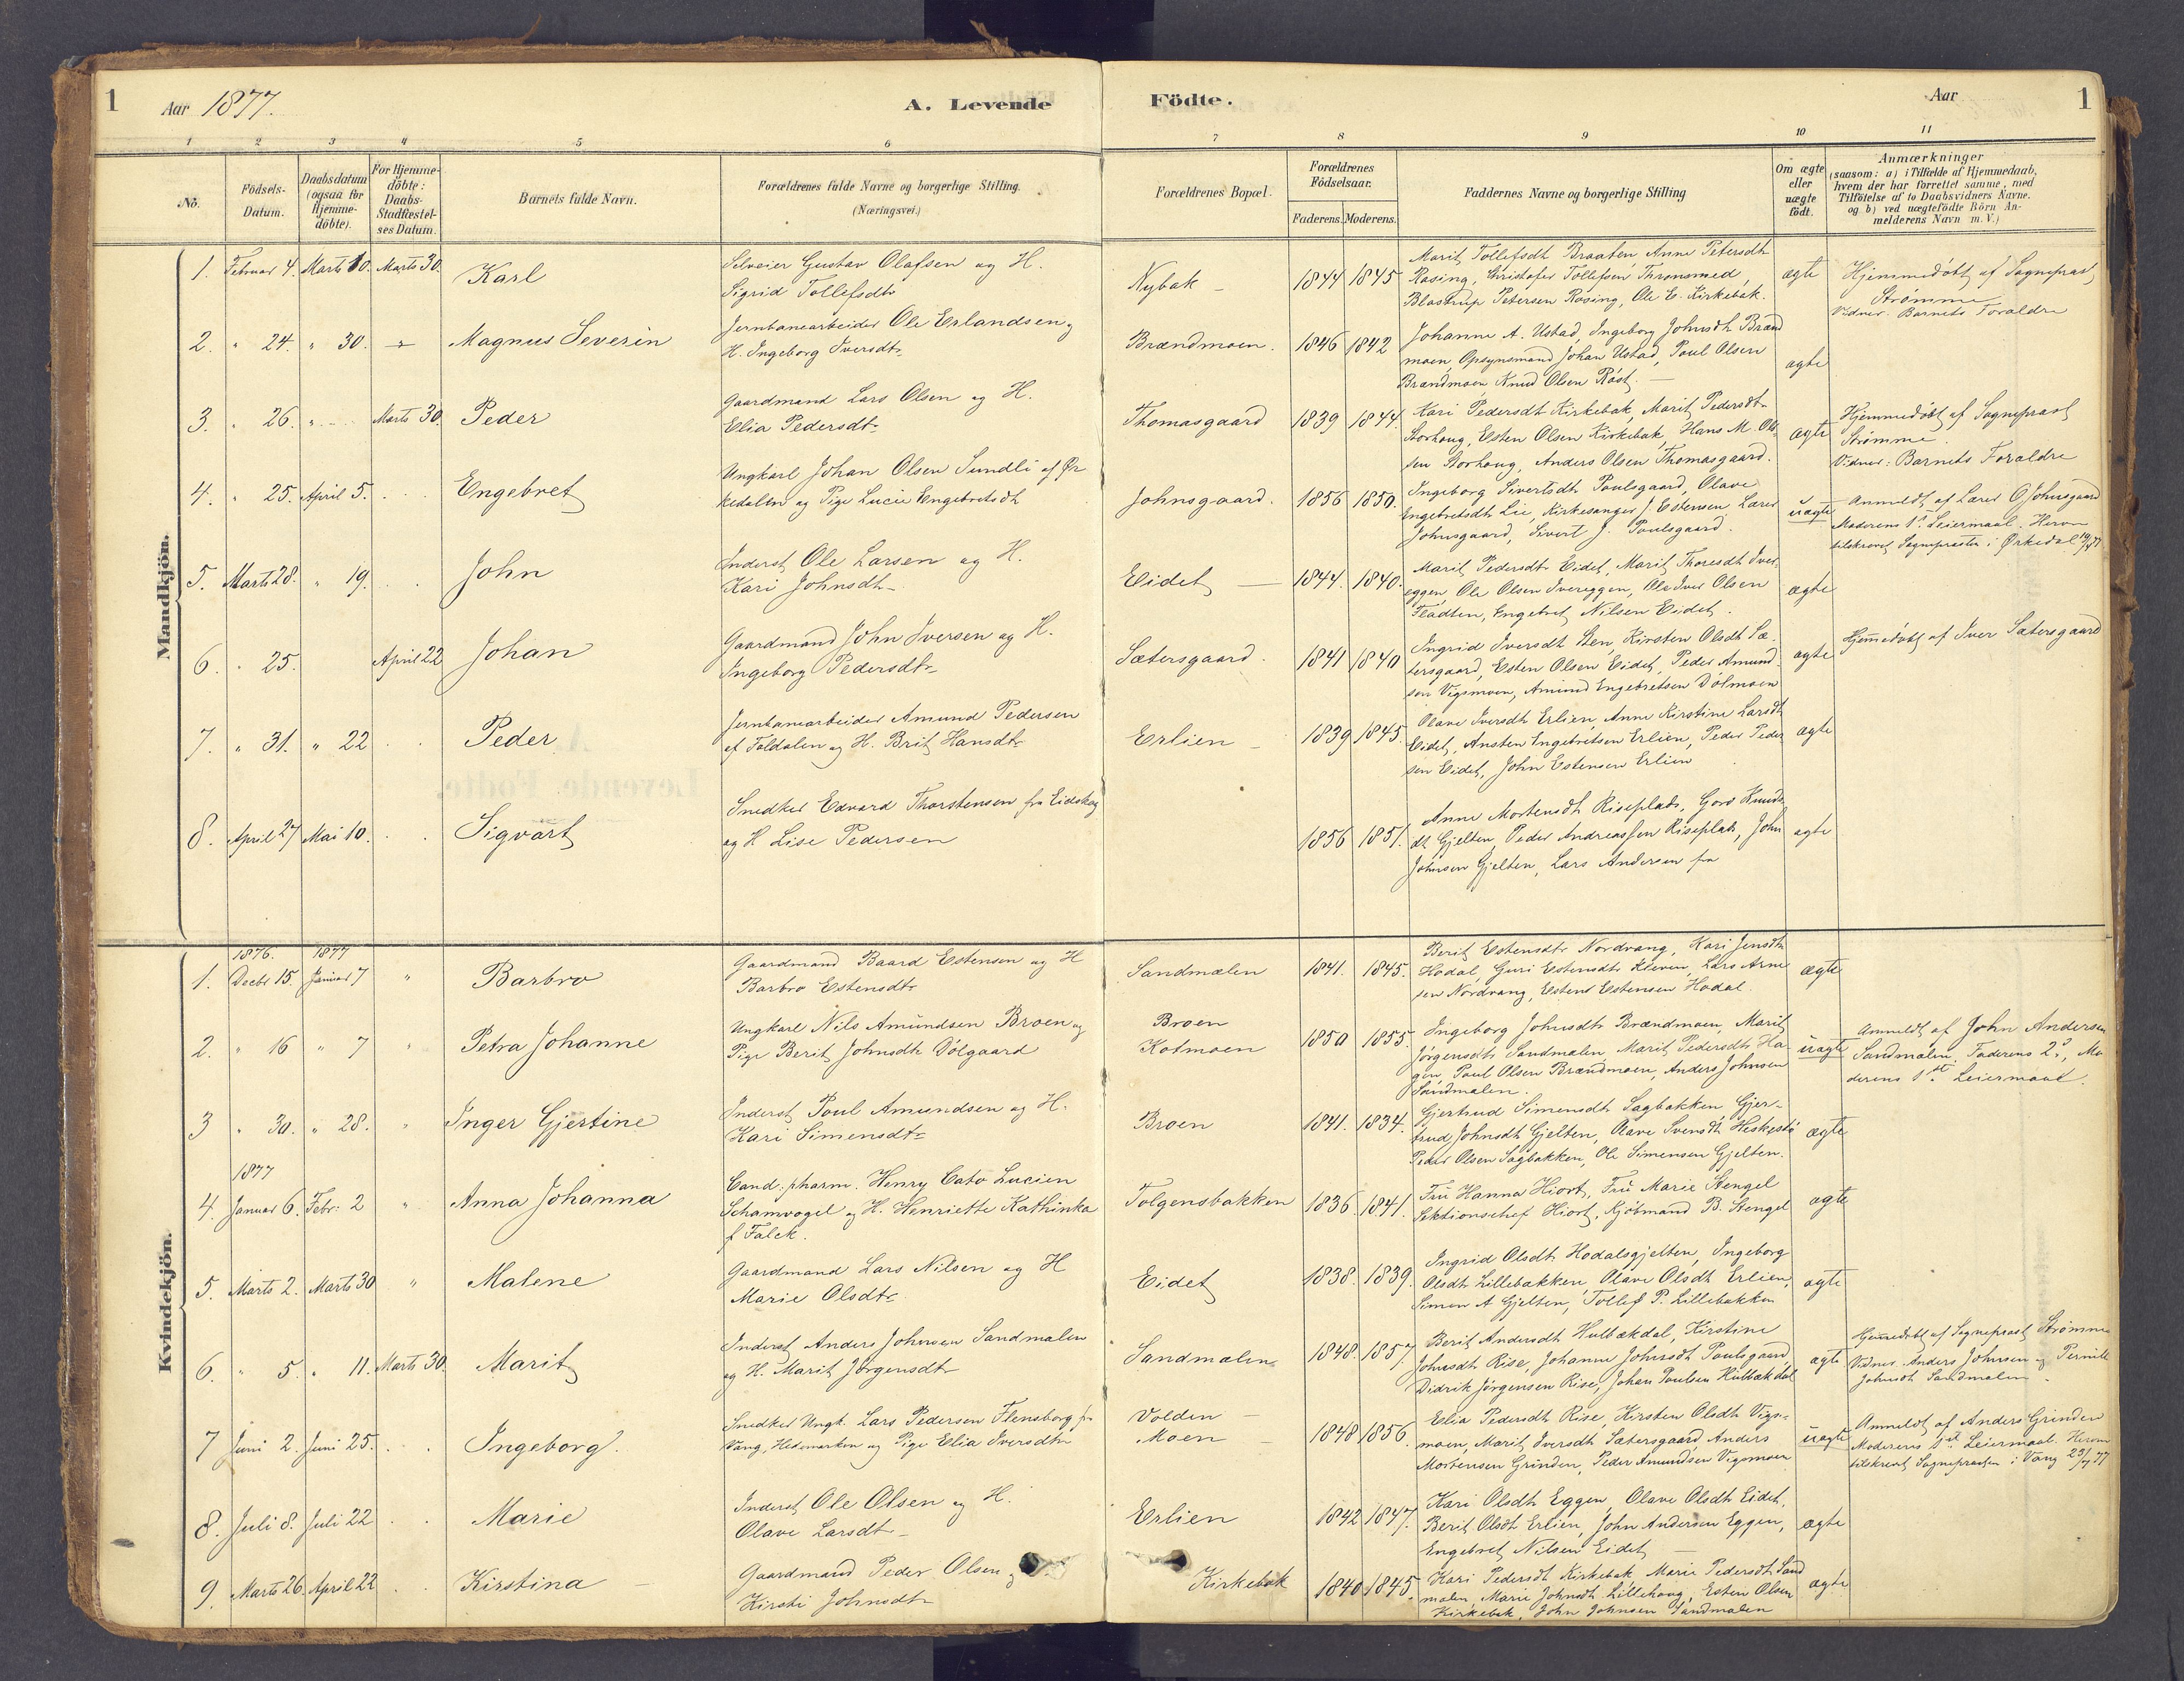 1 Aar 1877. A. Levende Födte. Aar 1
1 2 3 4 5 6 7 8 9 10 11
Nö.
Födsels-Datum.
Daabsdatum (ogsaa for Hjemme-döbte).
For Hjemme-döbte: Daabs-Stadfæstel-ses Datum.
Barnets fulde Navn.
Forældrenes fulde Navne og borgerlige Stilling. (Næringsvei.)
Forældrenes Bopæl.
Forældrenes Födselsaar.
Faderens. Moderens.
Faddernes Navne og borgerlige Stilling
Om ægte eller uægte födt.
Anmærkninger (saasom: a) i Tilfælde af Hjemmedaab, hvem der har forrettet samme, med Tilföielse af to Daabsvidners Navne. og b) ved uægtefödte Börn Anmelderens Navn m.V.)
Mandkjön.
1. Februar 4. Marts 10. Marts 30. Karl
Selveier Gustav Olafsen og H.
Sigrid Tollefsdtr
Nybak 1844 1845
Marit Tollefsdtr Braaten Anne Petersdtr
Rosing, Christofer Tollefsen Thronsmed,
Blastrup Petersen Rosing, Ole E. Kirkebak.
ægte
Hjemmedöbt af Sognepræst
Strömme
Vidner: Barnets Forældre
2. " 24. " 30. Magnus Severin
Jernbanearbeider Ole Erlandsen og
H. Ingeborg Iversdtr
Brændmoen. 1846 1842
Johanne A. Ustad, Ingeborg Johnsdtr Brænd
moen, Opsynsmand Johan Ustad, Poul Olsen
Brændmoen Knud Olsen Röst.
ægte
3. " 26. " Marts 30. Peder
Gaardmand Lars Olsen og H.
Elia Pedersdtr
Thomasgaard 1839 1844.
Kari Pedersdtr Kirkebak, Marit Pedersdtr
Storhoug, Esten Olsen Kirkebak, Hans M. Ol
sen Storhoug, Anders Olsen Thomasgaard.
ægte
Hjemmedöbt af Sognepræst
Strömme.
Vidner: Barnets Forældre
4. " 25. April 5. Engebret
Ungkarl Johan Olsen Sundli af Ör
kedalen og Pige Lucie Engebretsdtr
Johnsgaard. 1856 1850.
Ingeborg Sivertsdtr Poulsgaard, Olave
Engebretsdtr Lie, Kirkesanger J. Estensen, Lærer
Johnsgaard, Sivert J. Poulsgaard.
uægte
Anmeldt af Lærer O Johnsgaard
Moderens 1ste Leiermaal. Herom
tilskrevet Sognepræsten i Örkedal
5. Marts 28. " 19. John
Inderst Ole Larsen og H.
Kari Johnsdtr
Eidet 1844. 1840.
Marit Pedersdtr Eidet, Marit Thoresdtr Iver
eggen, Ole Olsen Ivereggen, Ole Iver Olsen
Flådten, Engebret Nilsen Eidet.
ægte
6. " 25. April 22 Johan
Gaardmand John Iversen og H.
Ingeborg Pedersdtr
Sætersgaard. 1841 1840
Ingrid Iversdtr Sten, Kirsten Olsdtr Sæ
tersgaard, Esten Olsen Eidet, Peder Amund
sen Vigsmoen, Amund Engebretsen Dölmoen
ægte
Hjemmedöbt af Iver Sætersgaard
7. " 31. " 22 Peder
Jernbanearbeider Amund Pedersen
af Foldalen og H. Brit Hansdtr
Erlien 1839 1845.
Olave Iversdtr Erlien, Anne Kirstine Larsdtr
Eidet, Ansten Engebretsen Erlien, Peder Peder
sen Eidet, John Estensen Erlien
ægte
8. April 27 Mai 10. Sigvart
Snedker Edvard Thorstensen fra Eidskog
og H Lise Pedersen
1856 1851.
Anne Mortensdtr Riseplads, Goro Knuds
dtr Gjelten, Peder Andreassen Riseplads, John
Johnsen Gjelten, Lars Andersen fra
ægte
Kvindekjön.
1876. 1877
1. Decbr 15. Januar 7 " Barbro
Gaardmand Baard Estensen og H
Barbro Estensdtr
Sandmælen 1841. 1845.
Berit Estensdtr Nordvang, Kari Jensdtr
Hodal, Guri Estensdtr Kleven, Lars Arne
sen Nordvang, Esten Estensen Hodal.
ægte
2. " 16 " 7 " Petra Johanne
Ungkarl Nils Amundsen Broen og
Pige Berit Johnsdtr Dölgaard
Broen
Kotmoen
1850 1855.
Ingeborg Johnsdtr Brændmoen, Marit
Jörgensdtr Sandmælen, Marit Pedersdtr Ha
gen Poul Olsen Brændmoen, Anders Johnsen
Sandmælen.
uægte
Anmeldt af John Andersen
Sandmælen. Faderens 2d, Mo
derens 1ste Leiermaal.
3 " 30. " 28. " Inger Gjertine
Inderst Poul Amundsen og H.
Kari Simensdtr
Broen 1841. 1834.
Gjertrud Simensdtr Sagbakken, Gjer-
trud Johnsdtr Gjelten, Olave Svensdtr
Peder Olsen Sagbakken, Ole Simensen Gjelten.
ægte
1877
4. Januar 6. Febr: 2 " Anna Johanna
Cand. pharm. Henry Cato Lucien
Schamvogel og H. Henriette Kathinka
f. Falck.
Tolgensbakken 1836. 1841.
Frü Hanna Hiort, Frü Marie Stengel
Sektionschef Hiort, Kjöbmand B. Stengel
ægte
5. Marts 2. Marts 30 " Malene
Gaardmand Lars Nilsen og H
Marie Olsdtr
Eidet 1838. 1839.
Ingrid Olsdtr Hodalsgjelten, Ingeborg
Olsdtr Lillebakken, Olave Olsdtr Erlien,
Simen A Gjelten, Tollef P. Lillebakken
ægte
6. " 5. " 11. Marts 30. Marit
Inderst Anders Johnsen Sandmælen
og H. Marit Jörgensdtr
Sandmælen 1848. 1857.
Berit Andersdtr Hulbækdal, Kirstine
Johnsdtr Rise, Johanne Johnsdtr Poulsgaard,
Didrik Jörgensen Rise, Johan Poulsen Hulbækdal
ægte
Hjemmedöbt af Sognepræst Strömme
Vidner: Anders Johnsen og Pernille
Johnsdtr Sandmælen
7 Juni 2. Juni 25. Ingeborg.
Snedker Ungk. Lars Pedersen Flensborg fr
Vang, Hedemarken og Pige Elia Iversdtr
Volden
Moen
1848 1856.
Elia Pedersdtr Rise, Kirsten Olsdtr Vigs-
moen, Marit Iversdtr Sætersgaard Anders
Mortensen Grinden, Peder Amundsen Vigsmoen
uægte
Anmeldt af Anders Grinden
Moderens 1ste Leiermaal. Herom
tilskrevet Sognepræsten i Vang 23/7 77
8. Juli 8. Juli 22 Marie
Inderst Ole Olsen og H.
Olave Larsdtr
Erlien 1842 1847.
Kari Olsdtr Eggen, Olave Olsdtr Eidet,
Berit Olsdtr Erlien, John Andersen Eggen,
Engebret Nilsen Eidet
ægte
9. Marts 26. April 22 Kirstina
Gaardmand Peder Olsen og
Kirsti Johnsdtr
Kirkebak 1840 1845.
Kari Pedersdtr Kirkebak Marie Pedersdtr Sand
mælen, Marie Johnsdtr Lillehoug, Esten Olsen
Kirkebak, John Johnsen Sandmælen
ægte